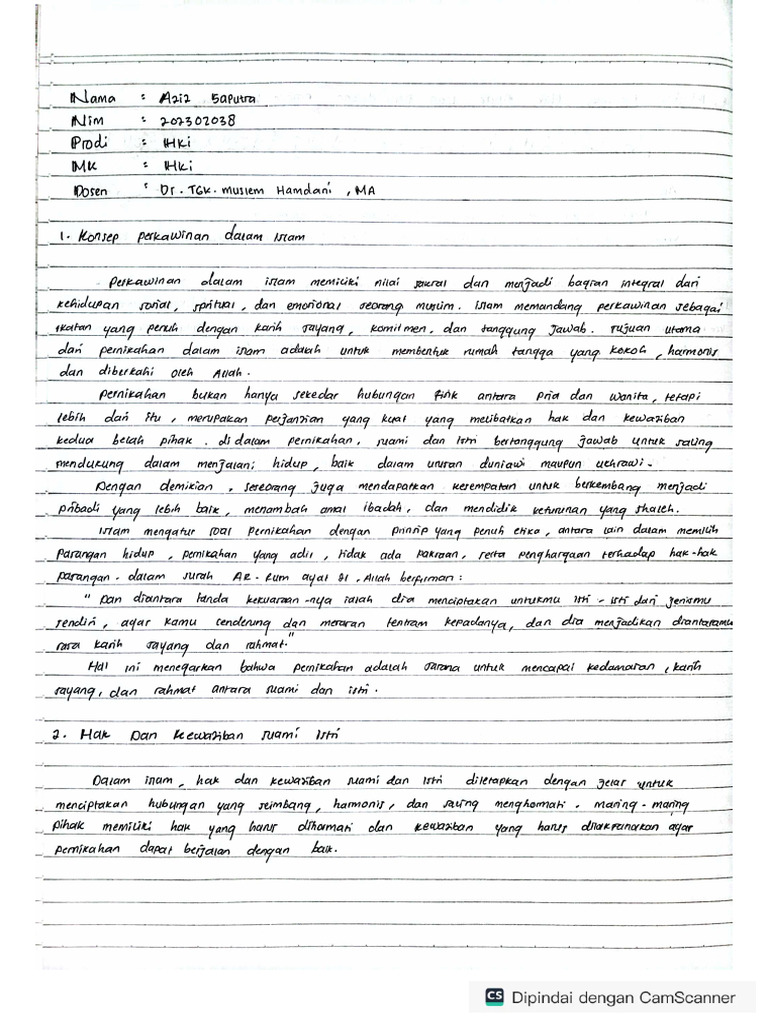 Nama : Aziz Saputra
Nim : 202302038
Prodi : HKi
MK : HKi
Dosen : Dr. TGK. Muslem Hamdani, MA
1. Konsep perkawinan dalam islam
Perkawinan dalam islam memiliki nilai sakral dan menjadi bagian integral dari
kehidupan sosial, spritual, dan emosional seorang muslim. Islam memandang perkawinan sebagai
ikatan yang penuh dengan kasih sayang, komitmen, dan tanggung jawab. Tujuan utama
dari pernikahan dalam islam adalah untuk membentuk rumah tangga yang kokoh, harmonis
dan diberkahi oleh Allah.
Pernikahan bukan hanya sekedar hubungan fisik antara pria dan wanita, tetapi
lebih dari itu, merupakan perjanjian yang kuat yang melibatkan hak dan kewajiban
kedua belah pihak. di dalam pernikahan, suami dan istri bertanggung jawab untuk saling
mendukung dalam menjalani hidup, baik dalam urusan duniawi maupun uchrawi.
Dengan demikian, seseorang juga mendapatkan kesempatan untuk berkembang menjadi
pribadi yang lebih baik, menambah amal ibadah, dan mendidik keturunan yang shaleh.
Islam mengatur soal pernikahan dengan prinsip yang penuh etika, antara lain dalam memilih
pasangan hidup, pernikahan yang adil, tidak ada paksaan, serta penghargaan terhadap hak-hak
pasangan. dalam surah AR-Rum ayat 21, Allah berfirman:
" Dan diantara tanda kekuasaan-nya ialah dia menciptakan untukmu istri-istri dari jenismu
sendiri, agar kamu cenderung dan merasan tentram kepadanya, dan dia menjadikan diantaramu
rasa kasih sayang dan rahmat."
Hal ini menegaskan bahwa pernikahan adalah sarana untuk mencapai kedamaian, kasih
sayang, dan rahmat antara suami dan istri.
2. Hak Dan Kewajiban suami istri
Dalam islam, hak dan kewajiban suami dan istri ditetapkan dengan jelas untuk
menciptakan hubungan yang seimbang, harmonis, dan saling menghormati. masing-masing
pihak memiliki hak yang harus dihormati dan kewajiban yang harus dilaksanakan agar
pernikahan dapat berjalan dengan baik.
CS Dipindai dengan CamScanner